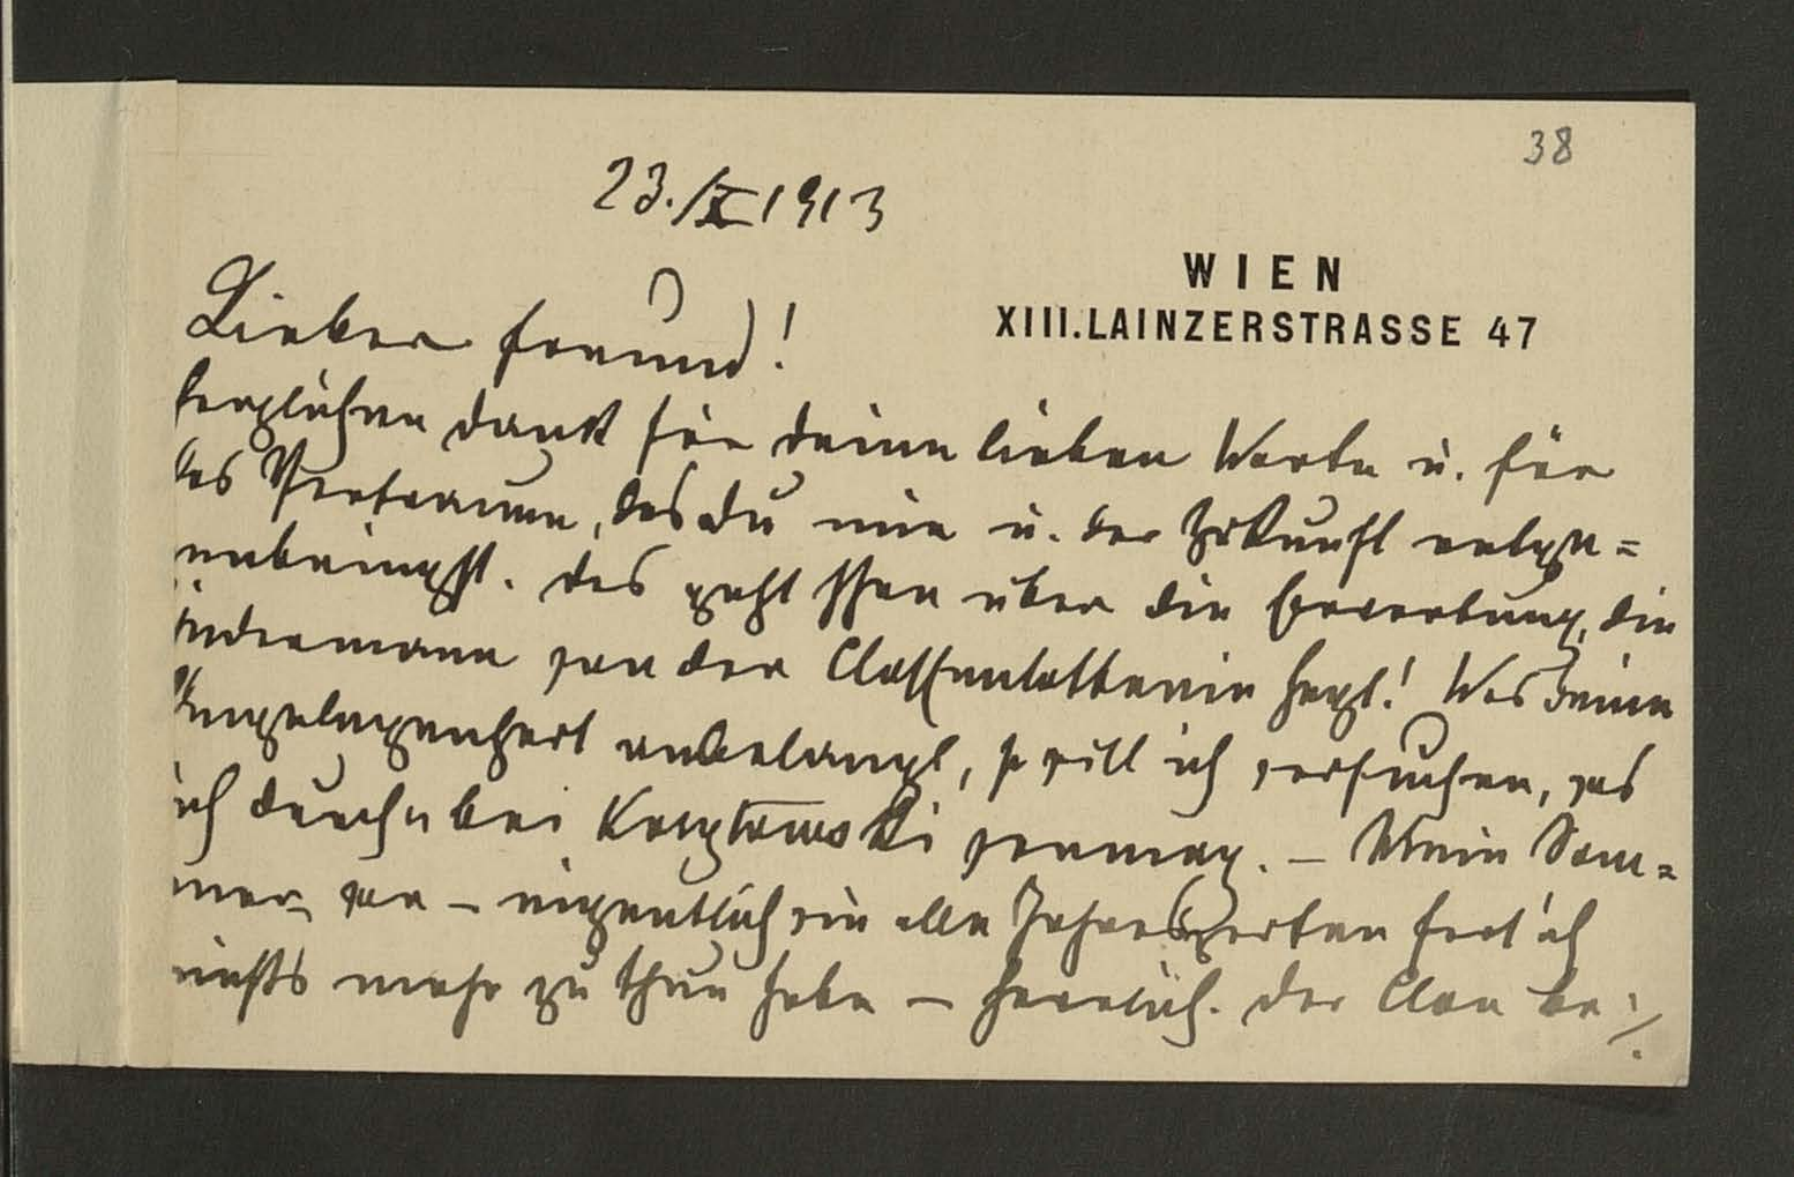 38
23./X 1913
WIEN
XIII. LAINZERSTRASSE 47
Lieber Freund!
herzlichen Dank für deine lieben Worte u. für
das Vertrauen, das du mir u. der Zukunft entge=
enbringst. Das geht schon über die Erwartung, die
jedermann von der Classenlotterie hegt! Was deine
Angelegenheit anbelangt, so will ich versuchen, was
ich durch u bei vermag. – Mein Som=
mer war – eigentlich wie alle Jahreszeiten seit ich
nichts mehr zu thun habe – herrlich. Der Clan be:/.